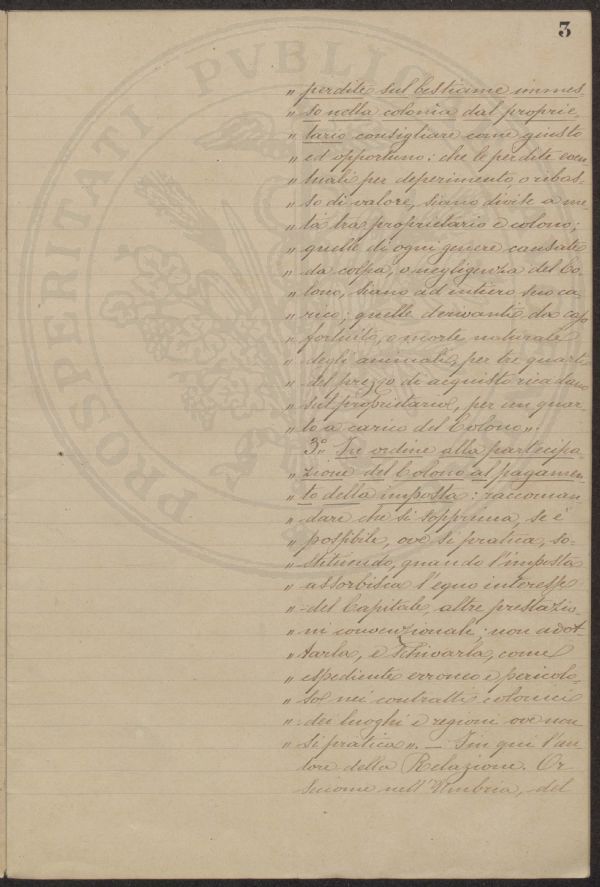 3
" perdite sul bestiame immes
" so nella colonia dal proprie-
" tario consigliare come giusto
" ed opportuno: che le perdite even
" tuali per deperimento, o ribas-
" so di valore, siano divise a me-
" tà tra proprietario e colono;
" quelle di ogni genere causate
" da colpa, o negligenza del Co-
" lono, siano ad intiero suo ca-
" rico; quelle derivanti da caso
" fortuito, o morte naturale
" degli animali, per tre quarti
" del prezzo di acquisto ricadano
" sul proprietario, per un quar-
" to a carico del Colono".
" 3.° In ordine alla partecipa-
" zione del Colono al pagamen
" to della imposta: raccoman-
" dare che si sopprima, se è
" possibile, ove si pratica, so-
" stituendo, quando l'imposta
" assorbisca l'equo interesse
" del Capitale, altre prestazio-
" ni convenzionali; non adot
" tarla, e schivarla, come
" espediente erroneo e pericolo-
" so nei contratti colonici
" dei luoghi e regioni ove non
" si pratica". — Fin qui l'au
tore della Relazione. Or
siccome nell'Umbria, del
PROSPERITATI PVBLIC